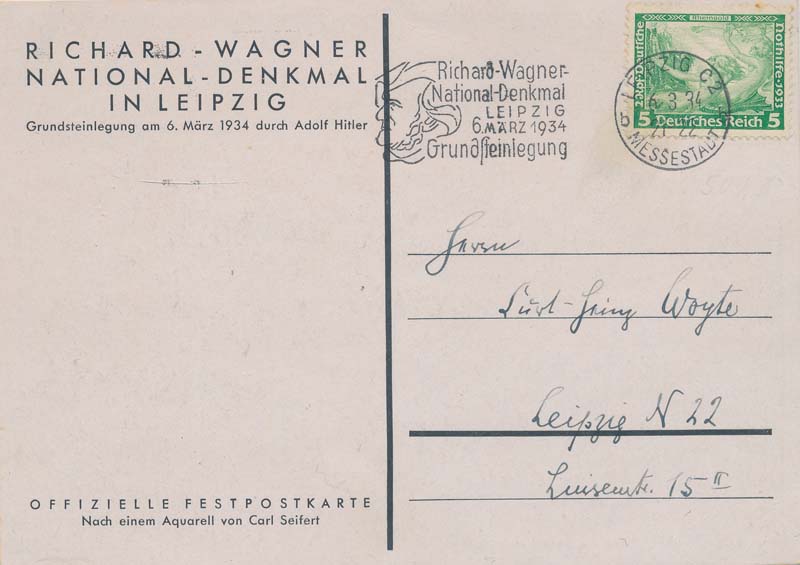 RICHARD-WAGNER
NATIONAL-DENKMAL
IN LEIPZIG
Grundsteinlegung am 6. März 1934 durch Adolf Hitler
OFFIZIELLE FESTPOSTKARTE
Nach einem Aquarell von Carl Seifert
Richard-Wagner-
National-Denkmal
LEIPZIG
6.MÄRZ 1934
Grundsteinlegung
LEIPZIG C2
6.3.34
MESSESTADT
Rheingold
Deutsche
Nothilfe 1933
5 Deutsches Reich 5
Herrn
Curt-Heinz Woyte
Leipzig N 22
Luisenstr. 15 II